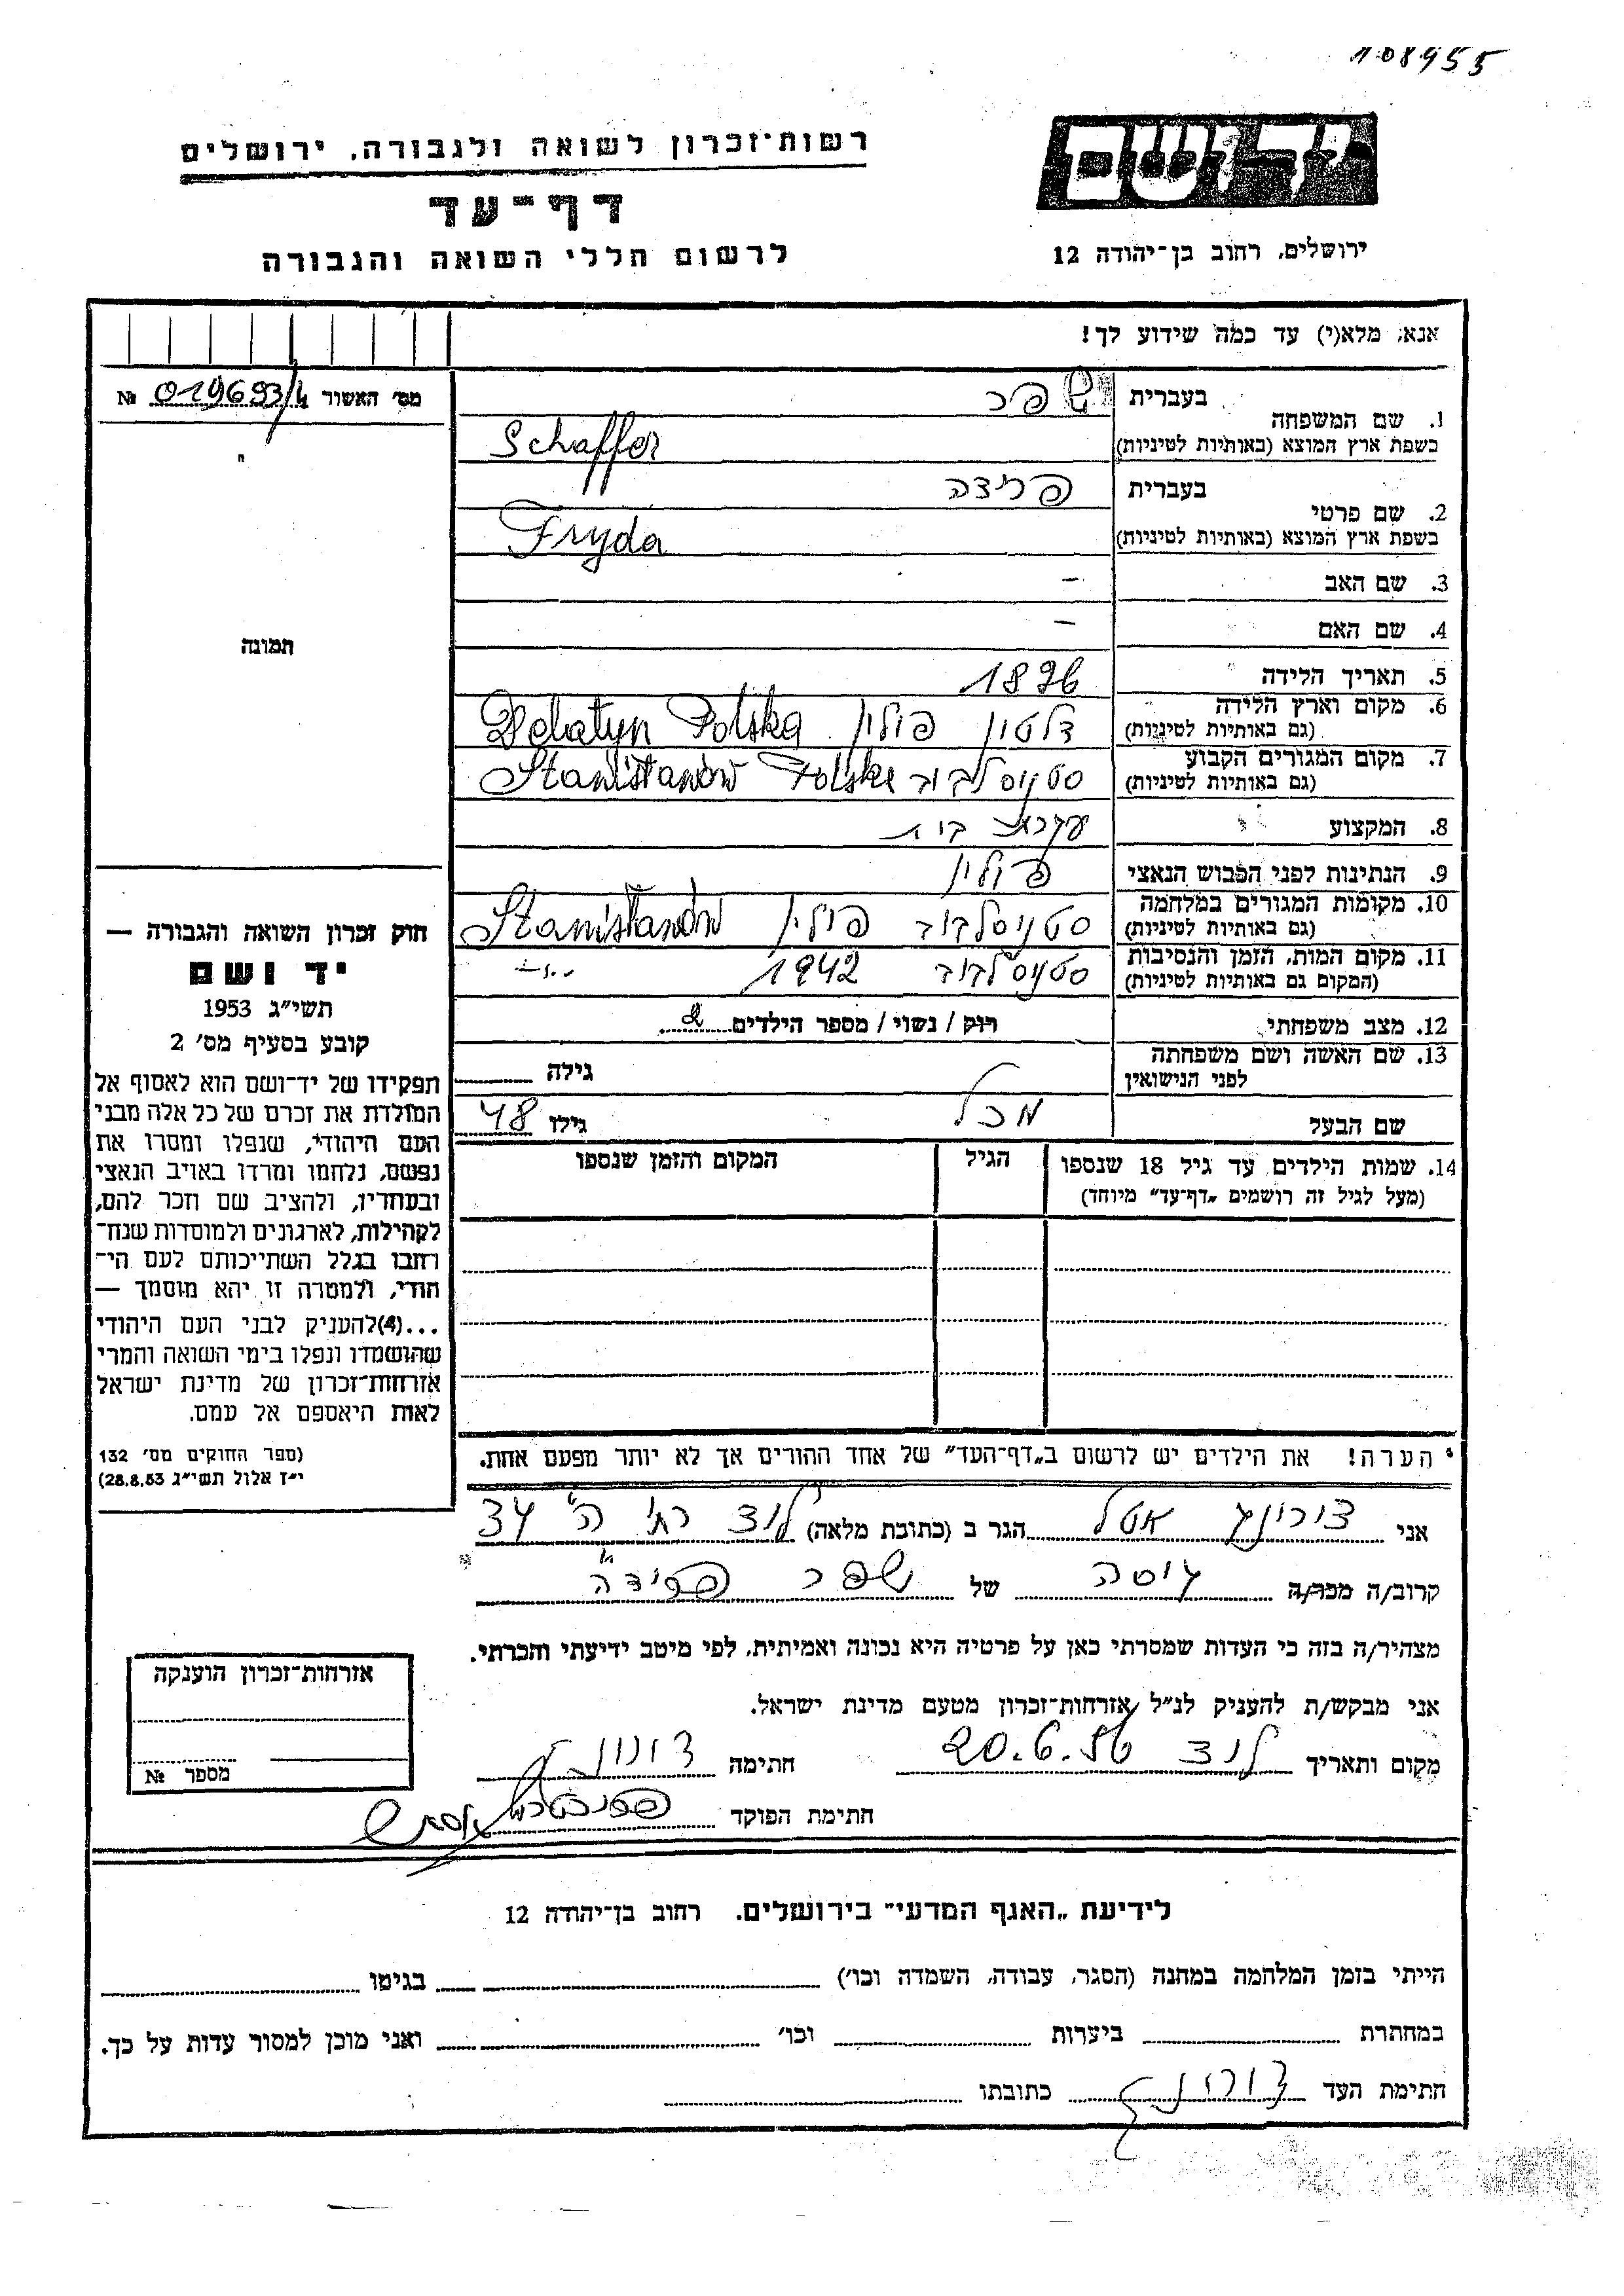 108955
יד ושם
רשות־זכרון לשואה ולגבורה, ירושלים
דף־עד
ירושלים, רחוב בן־יהודה 12
לרשום חללי השואה והגבורה
אנא, מלא(י) עד כמה שידוע לך!
מס׳ האשור 019693/4 №
בעברית שפר
1. שם המשפחה
בשפת ארץ המוצא (באותיות לטיניות) Schaffer
בעברית פרידה
2. שם פרטי
בשפת ארץ המוצא (באותיות לטיניות) Fryda
3. שם האב —
4. שם האם —
תמונה
5. תאריך הלידה 1896
6. מקום וארץ הלידה
(גם באותיות לטיניות) דלטין פולין Delatyn Polska
7. מקום המגורים הקבוע
(גם באותיות לטיניות) סטניסלבוב Stanisławów Polska
8. המקצוע עקרת בית
9. הנתינות לפני הכבוש הנאצי פולין
10. מקומות המגורים במלחמה
(גם באותיות לטיניות) סטניסלבוב פולין Stanisławów
11. מקום המות, הזמן והנסיבות
(המקום גם באותיות לטיניות) סטניסלבוב 1942
12. מצב משפחתי רוק / נשוי / מספר הילדים 2
13. שם האשה ושם משפחתה
לפני הנישואין גילה
שם הבעל מכל גילו 48
14. שמות הילדים עד גיל 18 שנספו הגיל המקום והזמן שנספו
(מעל לגיל זה רושמים „דף־עד״ מיוחד)
חוק זכרון השואה והגבורה —
יד ושם
תשי״ג 1953
קובע בסעיף מס׳ 2
תפקידו של יד־ושם הוא לאסוף אל
המולדת את זכרם של כל אלה מבני
העם היהודי, שנפלו ומסרו את
נפשם, נלחמו ומרדו באויב הנאצי
ובעוזריו, ולהציב שם וזכר להם,
לקהילות, לארגונים ולמוסדות שנח־
רחבו בגלל השתייכותם לעם הי־
הודי, ולמטרה זו יהא מוסמך —
...(4)להעניק לבני העם היהודי
שהושמדו ונפלו בימי השואה והמרי
אזרחות־זכרון של מדינת ישראל
לאות היאספם אל עמם.
(ספר החוקים מס׳ 132
י״ז אלול תשי״ג 28.8.53)
הערה! את הילדים יש לרשום ב„דף־העד״ של אחד ההורים אך לא יותר מפעם אחת.
אני אטל הגר ב (כתובת מלאה) לוד רח׳ ה׳ 34
קרוב/ה מכר/ה גיסה של שפר פרידה
מצהיר/ה בזה כי העדות שמסרתי כאן על פרטיה היא נכונה ואמיתית, לפי מיטב ידיעתי והכרתי.
אני מבקש/ת להעניק לנ״ל אזרחות־זכרון מטעם מדינת ישראל.
מקום ותאריך לוד 20.6.56 חתימה
חתימת הפוקד
אזרחות־זכרון הוענקה
מספר №
לידיעת „האגף המדעי״ בירושלים, רחוב בן־יהודה 12
הייתי בזמן המלחמה במחנה (הסגר, עבודה, השמדה וכו׳) בגיטו
במחתרת ביערות וכו׳ ואני מוכן למסור עדות על כך.
חתימת העד כתובתו